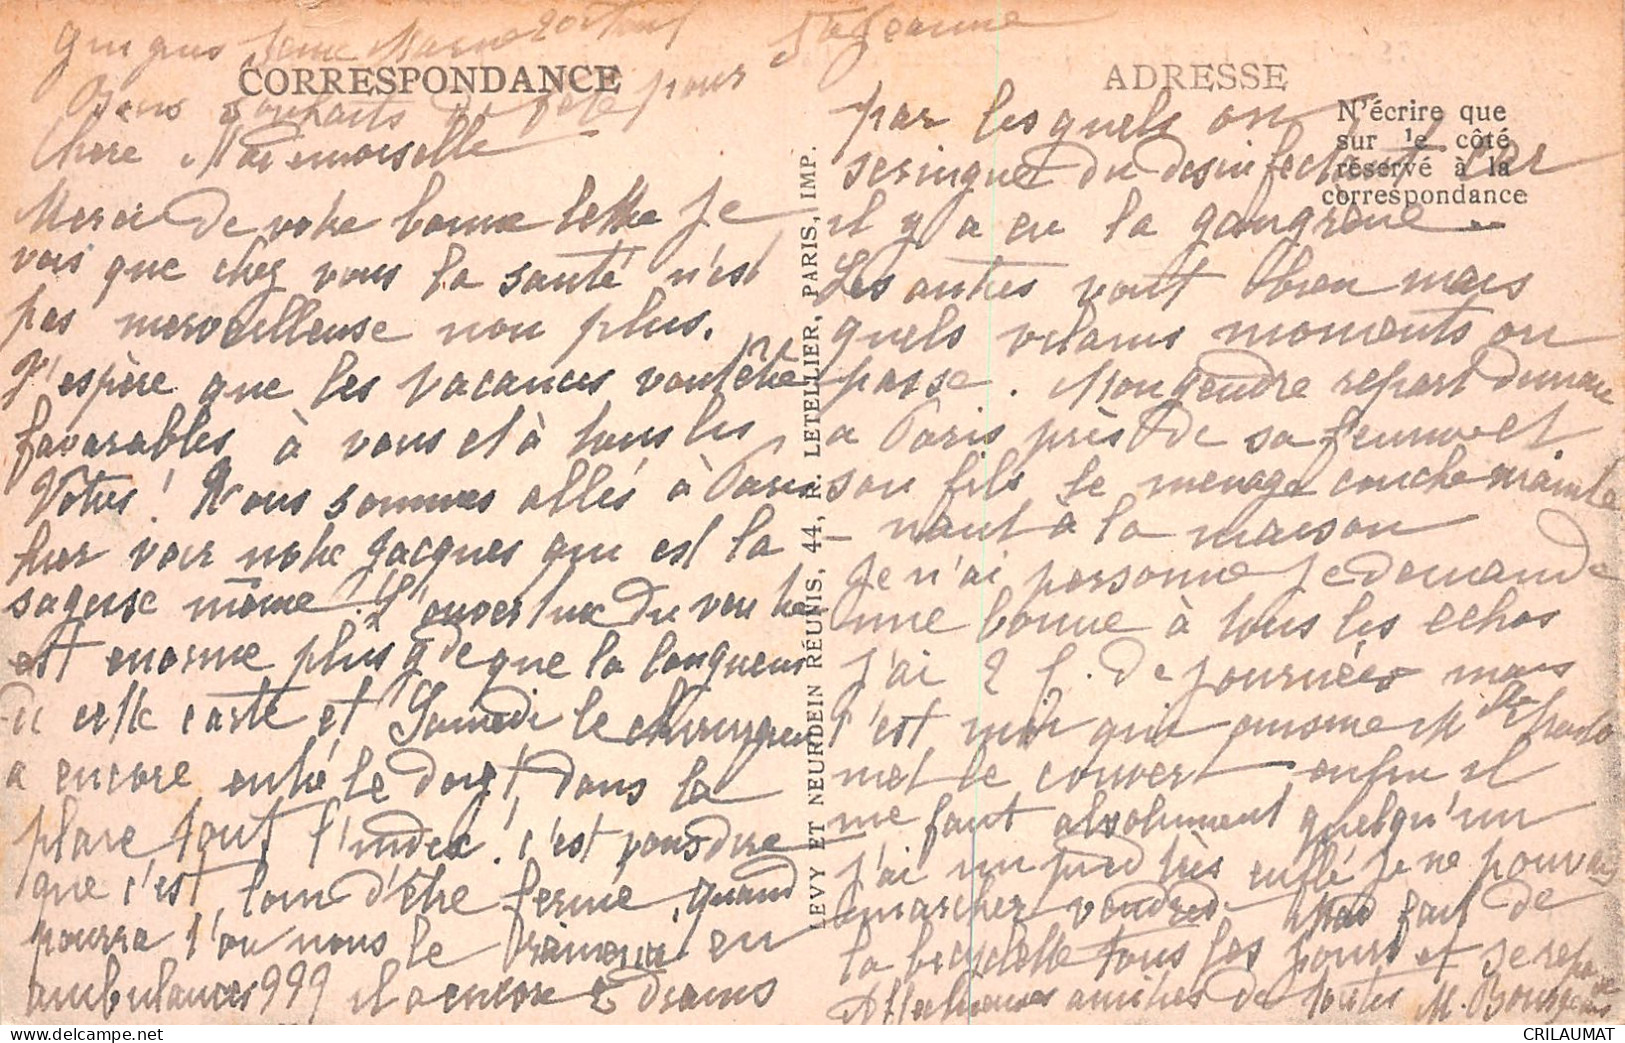 Guignes Seine Marne 20 août Ste Jeanne
CORRESPONDANCE
Bons souhaits de fête pour
Chère Mademoiselle
Merci de votre bonne lettre je
vois que chez vous la santé n'est
pas merveilleuse non plus.
J'espère que les vacances vont être
favorables à vous et à tous les
Vôtres! Nous sommes allés à Paris
hier voir notre Jacques qui est la
sagesse même! L'ouverture du ventre
est énorme plus gde que la longueur
de cette carte et Samedi le chirurgien
a encore entré le doigt dans la
plaie tout l'index! c'est vous dire
que c'est loin d'être fermé, quand
pourra t'on nous le ramener en
ambulance 999 il a encore 2 drains
ADRESSE
N'écrire que
sur le côté
réservé à la
correspondance
par lesquels on
seringue du désinfectant car
il y a eu la gangrène
Les autres vont bien mais
quels vilains moments on
passe. Mon gendre repart demain
a Paris près de sa femme et
son fils le ménage couche mainte
nant à la maison
Je n'ai personne je demande
une bonne à tous les échos
j'ai 2 f. de journées mais
c'est moi qui cuisine Mlle
met le couvert enfin il
me faut absolument quelqu'un
j'ai un pied très enflé je ne pouvais
marcher vendredi fait de
la bicyclette tous les jours et se repose
Affectueuses amitiés de toutes M. Bourgeois
LEVY ET NEURDEIN RÉUNIS, 44, R. LETELLIER, PARIS, IMP.
CRILAUMAT